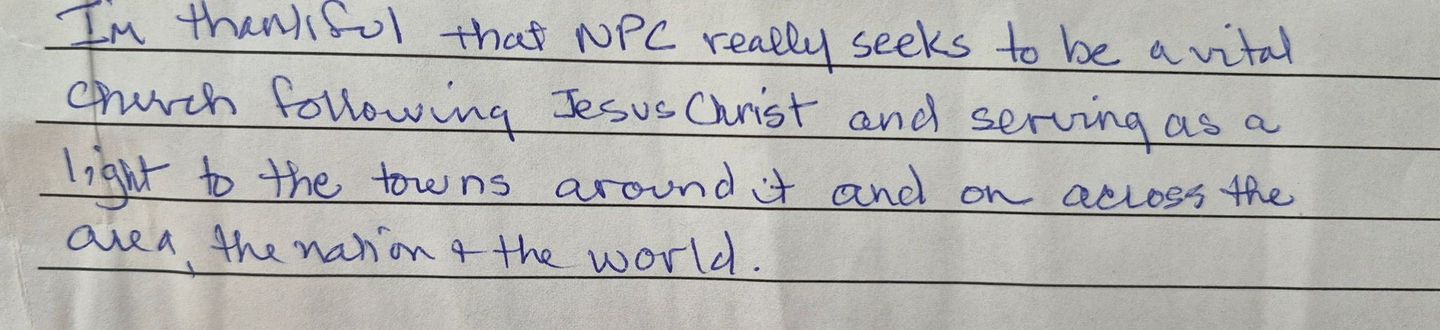 Im thankful that NPC really seeks to be a vital
church following Jesus Christ and serving as a
light to the towns around it and on across the
area, the nation & the world.